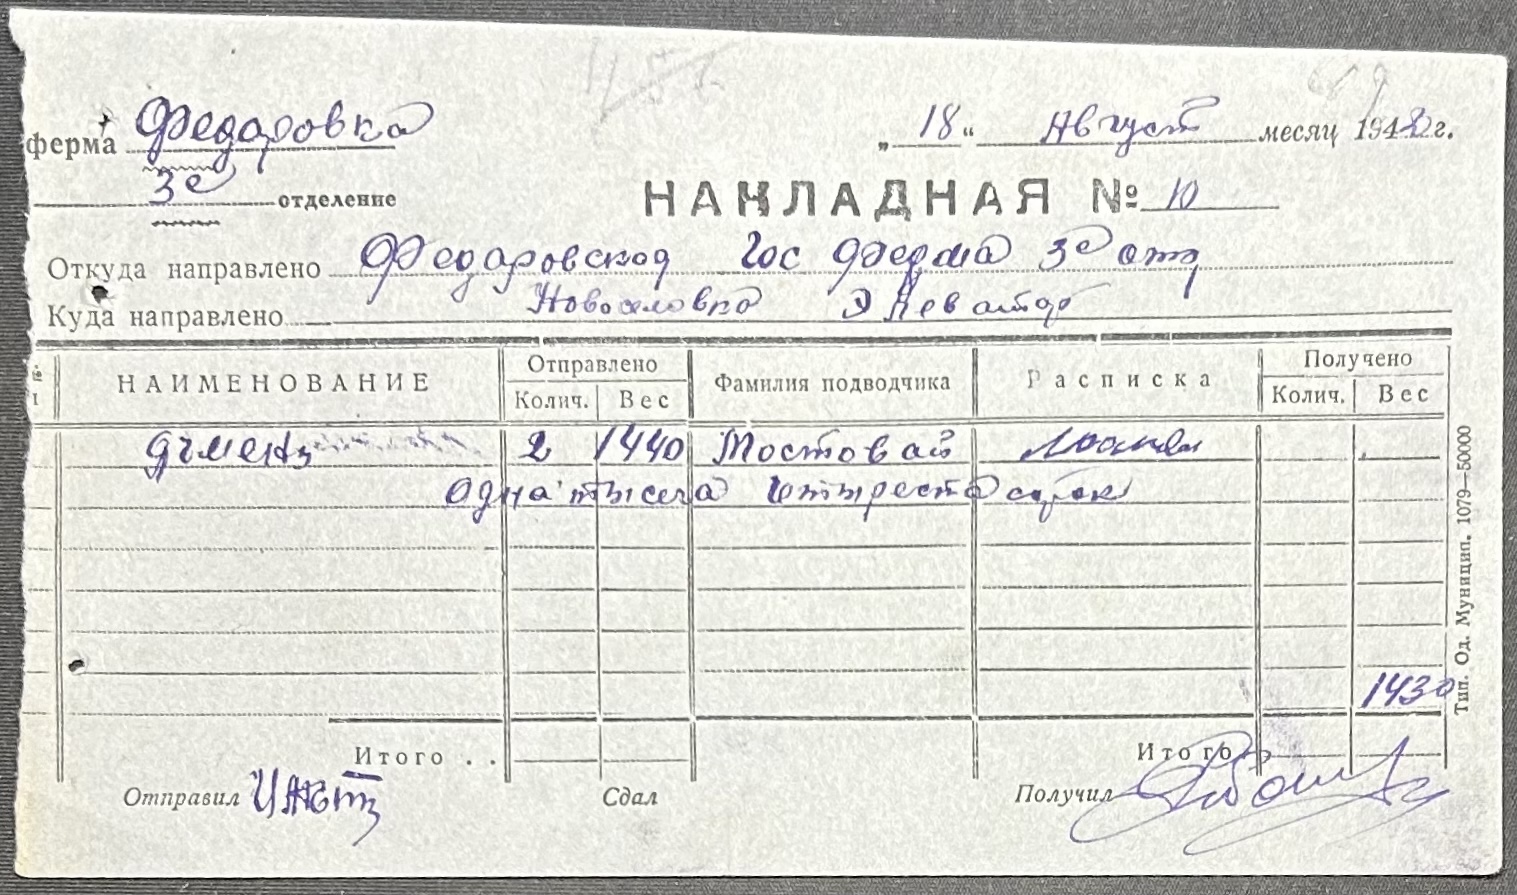 ферма Федаровка „18“ Август месяц 1942 г.
3е отделение
НАКЛАДНАЯ № 10
Откуда направлено Федаровской Гос ферма 3е отд
Куда направлено Новоселовка Элеватор
НАИМЕНОВАНИЕ Отправлено Фамилия подводчика Расписка Получено
Колич. Вес Колич. Вес
ячмень 2 1440 Мостовай
одна тысеча четтреста сорок
1430
Итого . . Итого
Отправил Сдал Получил
Тип. Од. Муницип. 1079—50000